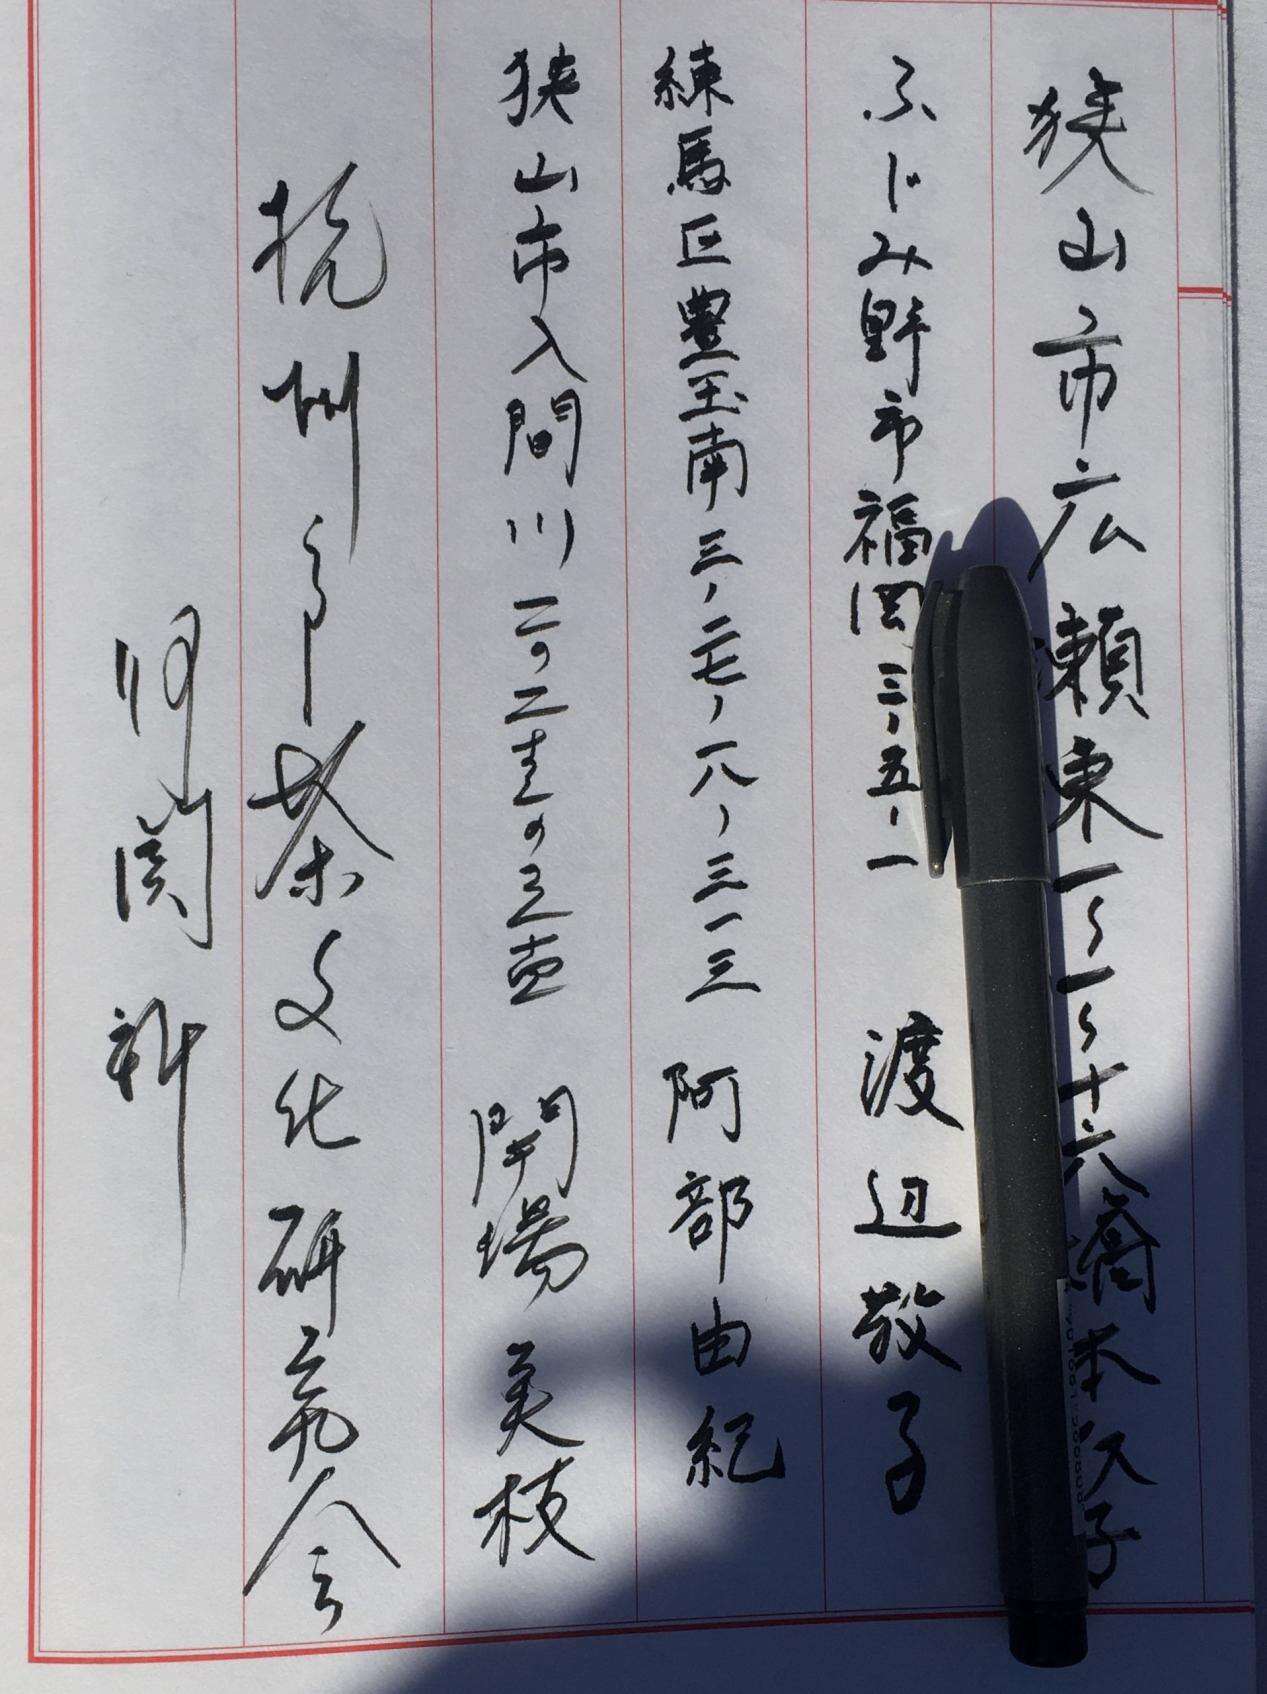 狭山市広瀬東一〜一〜十六橋本江子
ふじみ野市福岡三、五、一 渡辺敬子
練馬区豊玉南三、二七、一八、三一三 阿部由紀
狭山市入間川二の二十七の三壱 開場美枝
杭州市茶文化研究会
関新